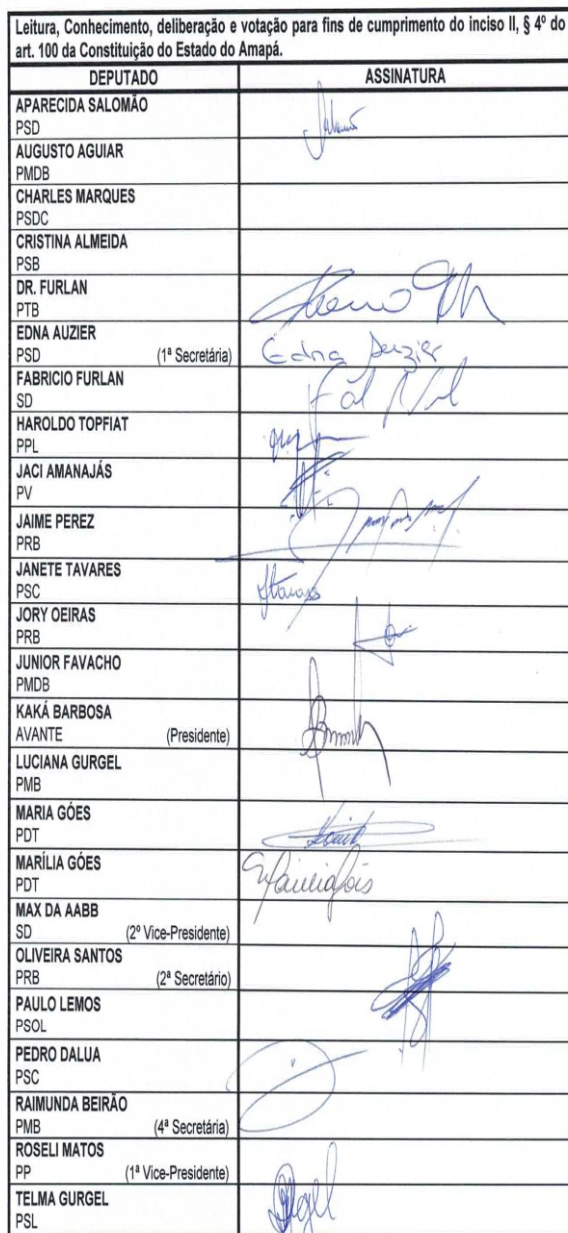 Leitura, Conhecimento, deliberação e votação para fins de cumprimento do inciso II, § 4º do
art. 100 da Constituição do Estado do Amapá.
DEPUTADO ASSINATURA
APARECIDA SALOMÃO
PSD
AUGUSTO AGUIAR
PMDB
CHARLES MARQUES
PSDC
CRISTINA ALMEIDA
PSB
DR. FURLAN
PTB
EDNA AUZIER
PSD (1ª Secretária) Edna Auzier
FABRICIO FURLAN
SD
HAROLDO TOPFIAT
PPL
JACI AMANAJÁS
PV
JAIME PEREZ
PRB
JANETE TAVARES
PSC
JORY OEIRAS
PRB
JUNIOR FAVACHO
PMDB
KAKÁ BARBOSA
AVANTE (Presidente)
LUCIANA GURGEL
PMB
MARIA GÓES
PDT
MARÍLIA GÓES
PDT
MAX DA AABB
SD (2º Vice-Presidente)
OLIVEIRA SANTOS
PRB (2ª Secretário)
PAULO LEMOS
PSOL
PEDRO DALUA
PSC
RAIMUNDA BEIRÃO
PMB (4ª Secretária)
ROSELI MATOS
PP (1ª Vice-Presidente)
TELMA GURGEL
PSL